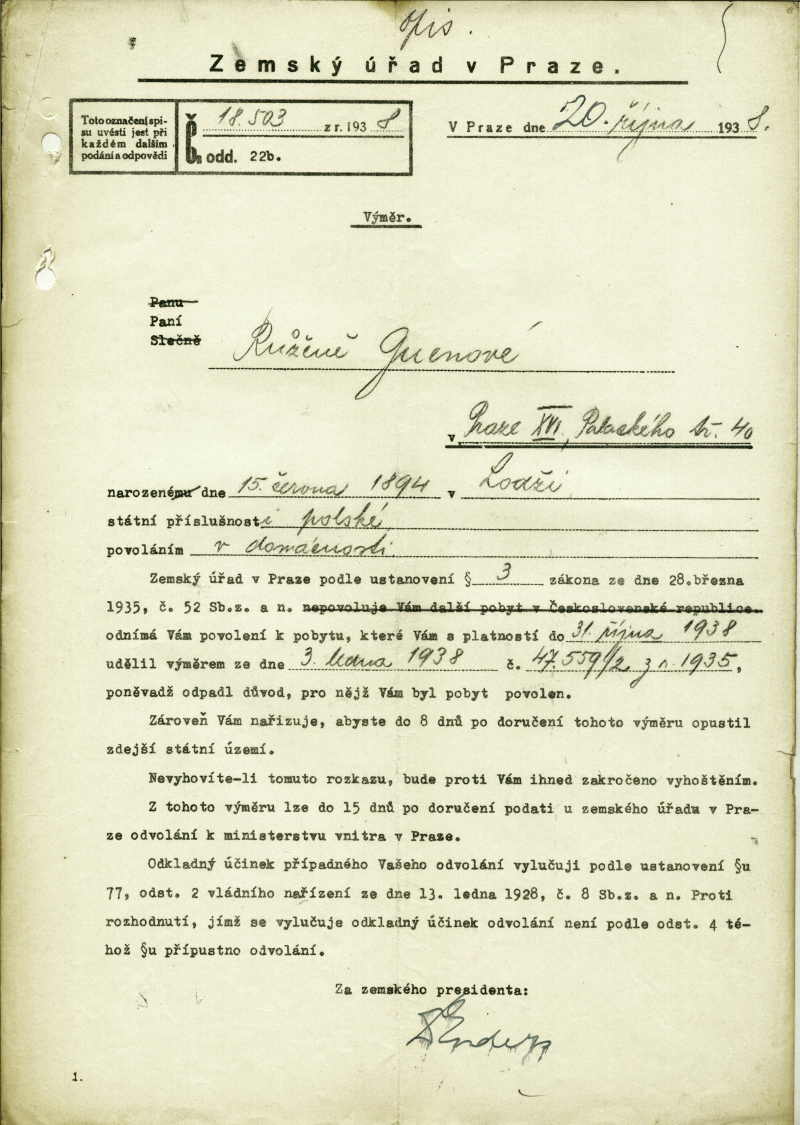 opis.
Zemský úřad v Praze.
Toto označení spi-
su uvésti jest při
každém dalším
podání a odpovědi
Č. 18.503 z r. 1938
odd. 22b.
V Praze dne 20. října 1938.
Výměr.
Panu
Paní
Slečně
Růženě Guenové
v Praze XVI, Palackého tř. 40
narozenému dne 15. června 1894 v Lodži
státní příslušnosti polské,
povoláním v domácnosti.
Zemský úřad v Praze podle ustanovení § 3 zákona ze dne 28.března
1935, č. 52 Sb.z. a n. nepovoluje Vám další pobyt v Československé republice.
odnímá Vám povolení k pobytu, které Vám s platností do 31. října 1938
udělil výměrem ze dne 3. ledna 1938 č. 47.559/2 z r. 1935,
poněvadž odpadl důvod, pro nějž Vám byl pobyt povolen.
Zároveň Vám nařizuje, abyste do 8 dnů po doručení tohoto výměru opustil
zdejší státní území.
Nevyhovíte-li tomuto rozkazu, bude proti Vám ihned zakročeno vyhoštěním.
Z tohoto výměru lze do 15 dnů po doručení podati u zemského úřadu v Pra-
ze odvolání k ministerstvu vnitra v Praze.
Odkladný účinek případného Vašeho odvolání vylučuji podle ustanovení §u
77, odst. 2 vládního nařízení ze dne 13. ledna 1928, č. 8 Sb.z. a n. Proti
rozhodnutí, jímž se vylučuje odkladný účinek odvolání není podle odst. 4 té-
hož §u přípustno odvolání.
Za zemského presidenta:
1.